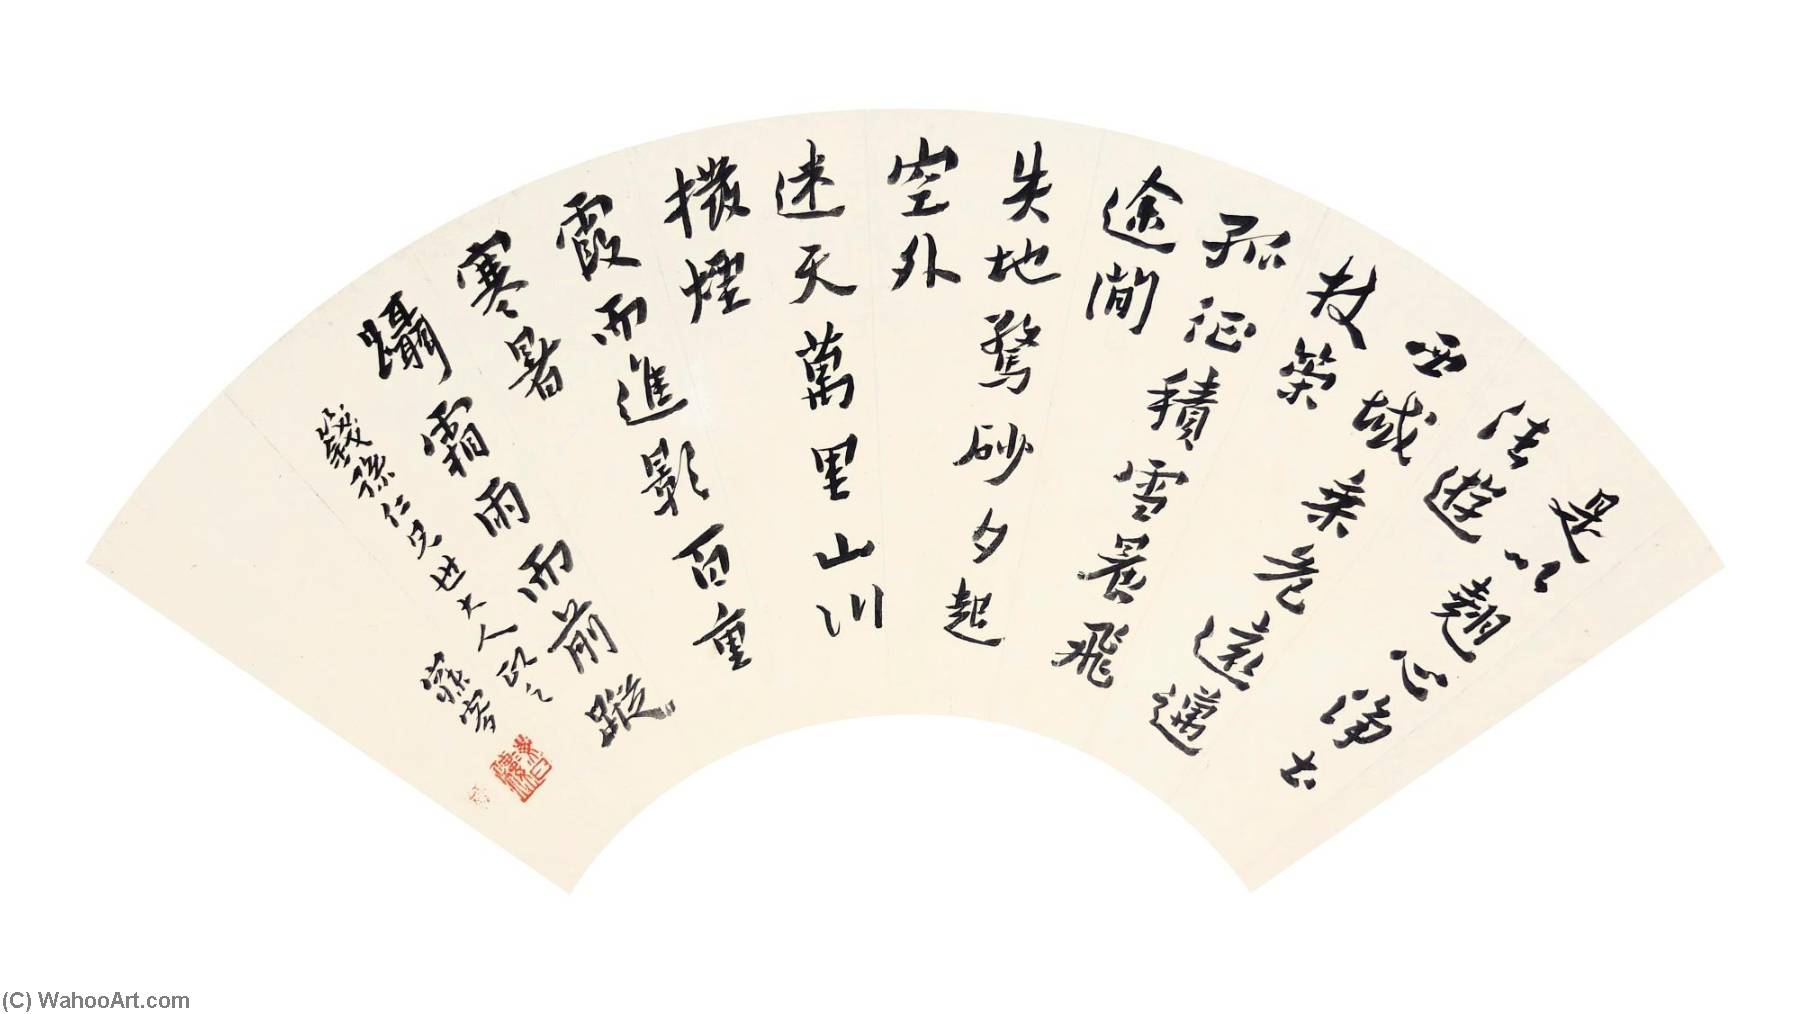 是以翹心淨土
法遊
西域乘危遠邁
杖策
孤征積雪晨飛
途閒
失地驚砂夕起
空外
迷天萬里山川
撥煙
霞而進影百重
寒暑
躡霜雨而前蹤
穀孫仁兄世大人政之
寐叟
(C) WahooArt.com